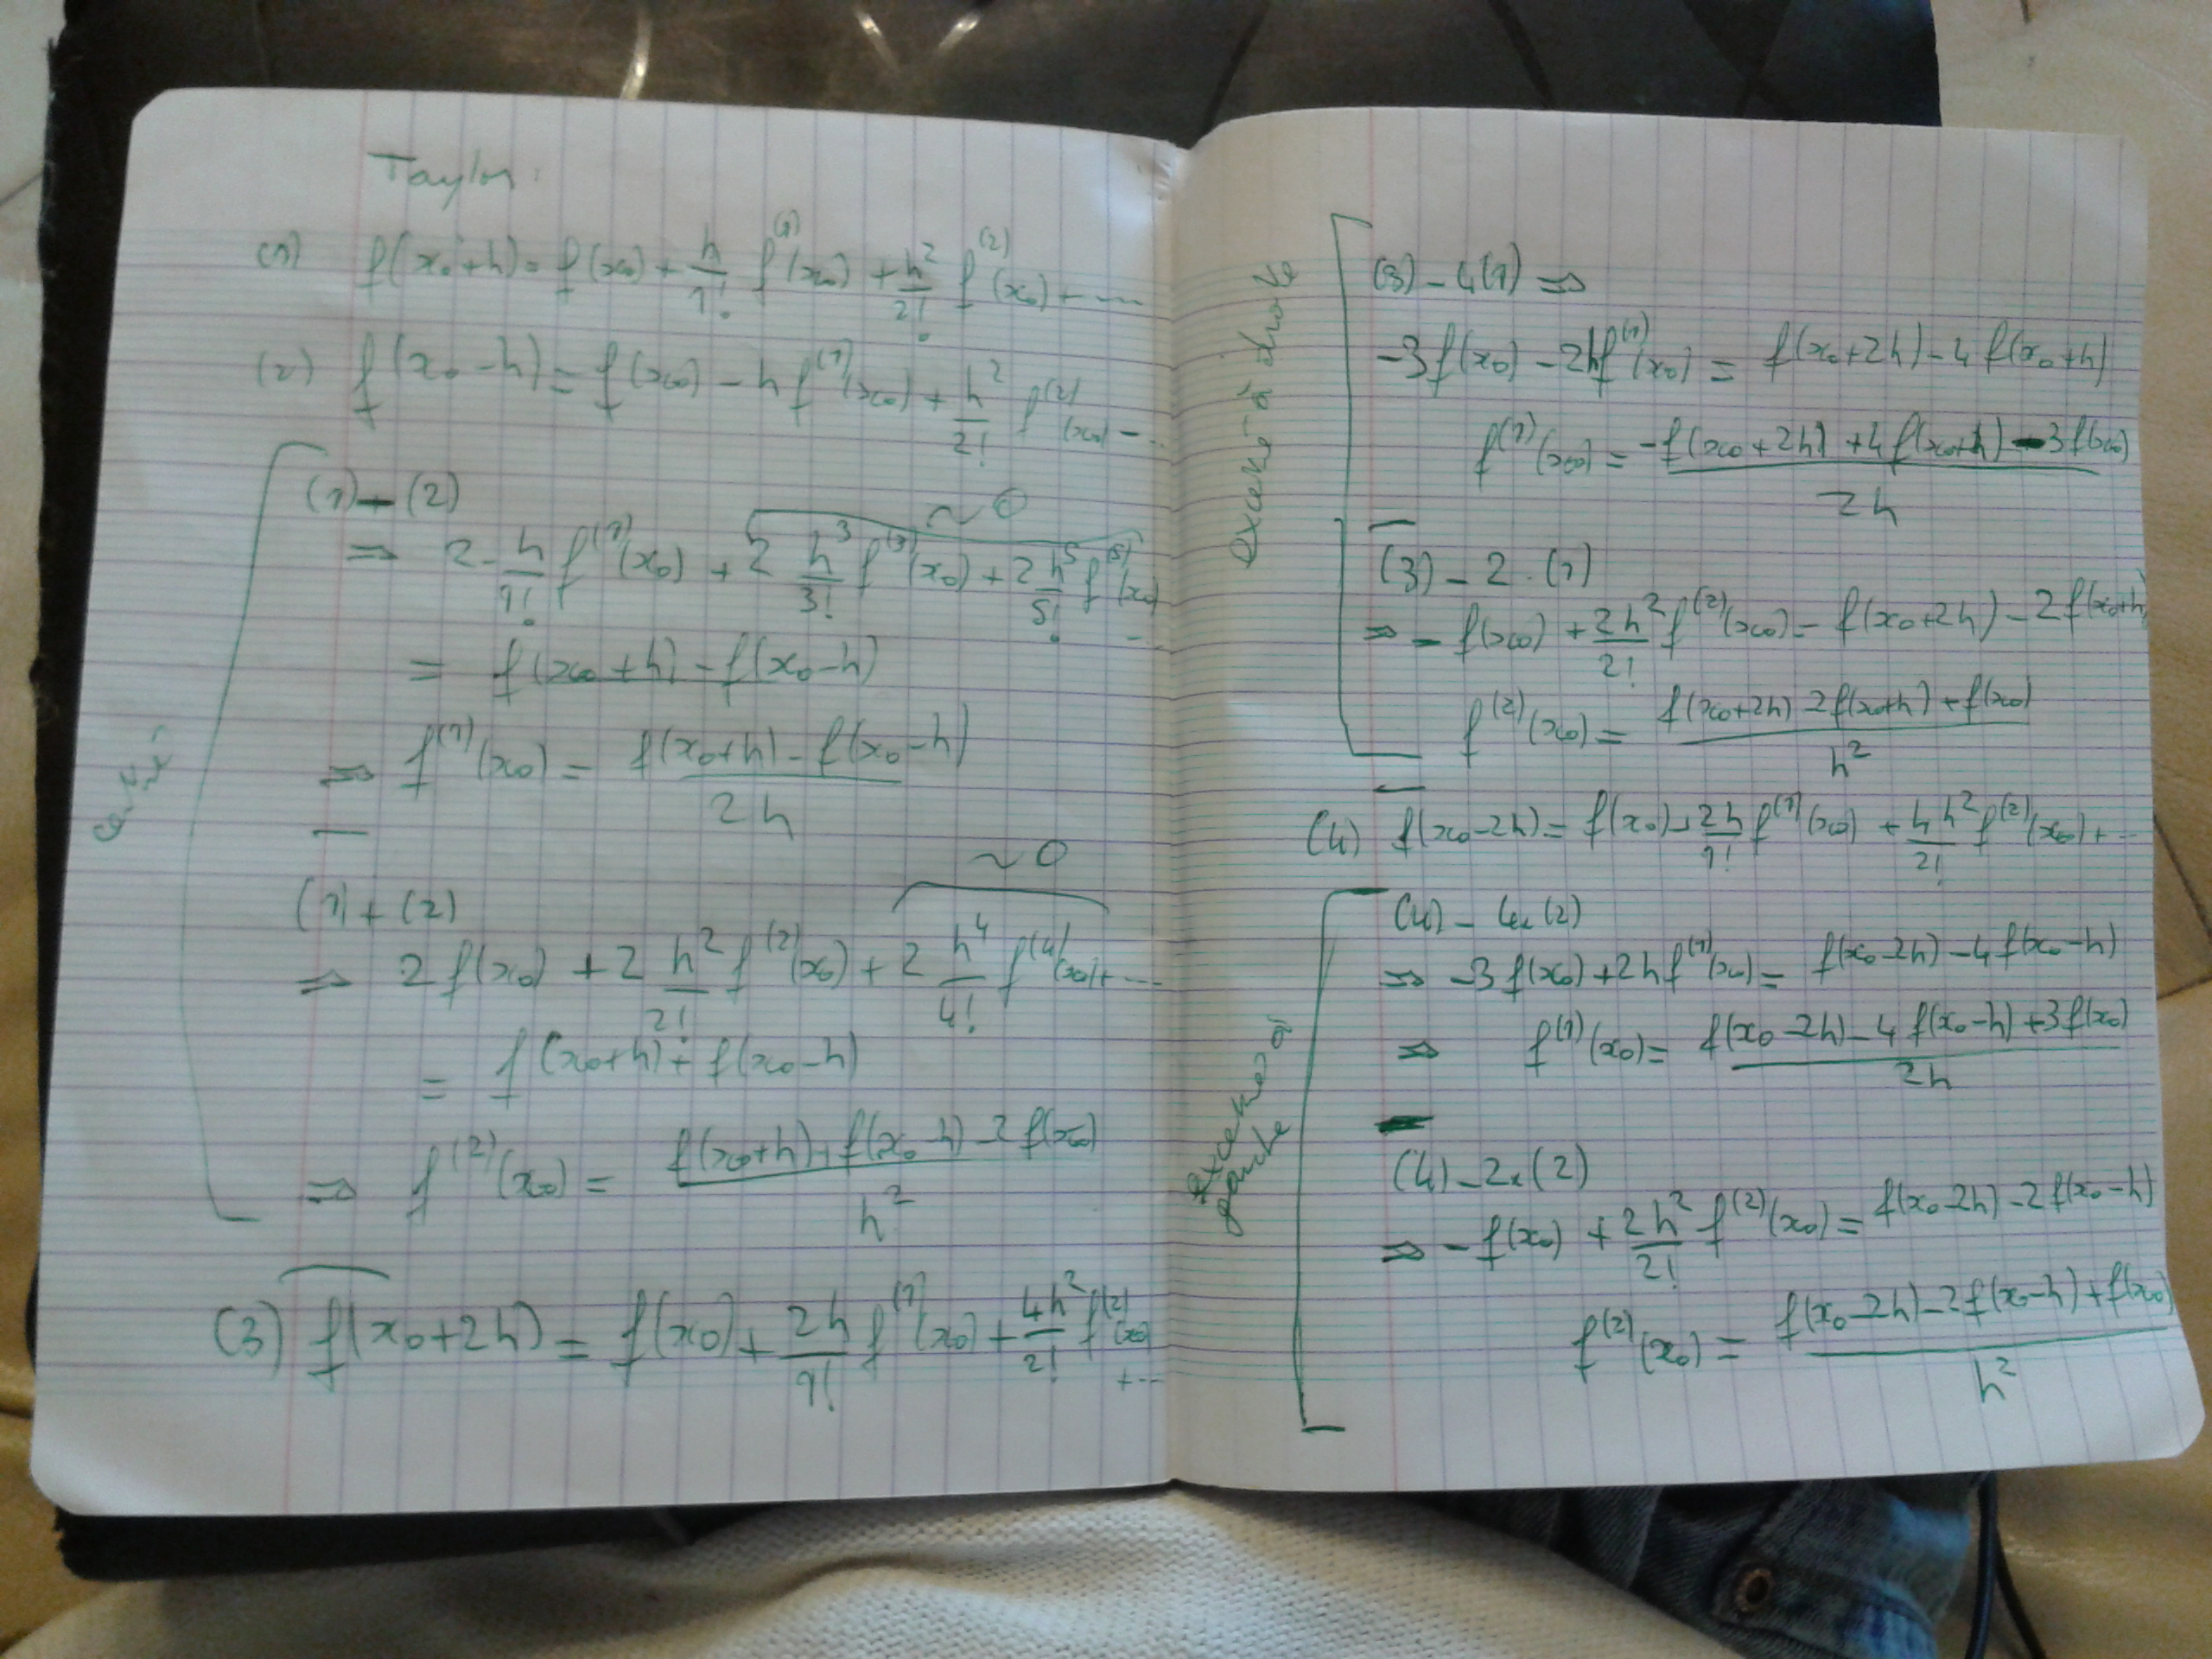 Taylor :
(1) f(x₀+h) = f(x₀) + h/1! f⁽¹⁾(x₀) + h²/2! f⁽²⁾(x₀) + ----
(2) f(x₀-h) = f(x₀) - h f⁽¹⁾(x₀) + h²/2! f⁽²⁾(x₀) - ...
(1) - (2)
~ 0
⇒ 2 h/1! f⁽¹⁾(x₀) + 2 h³/3! f⁽³⁾(x₀) + 2 h⁵/5! f⁽⁵⁾(x₀) ...
= f(x₀+h) - f(x₀-h)
⇒ f⁽¹⁾(x₀) = (f(x₀+h) - f(x₀-h))/2h
~ 0
(1) + (2)
⇒ 2 f(x₀) + 2 h²/2! f⁽²⁾(x₀) + 2 h⁴/4! f⁽⁴⁾(x₀) + ---
= f(x₀+h) + f(x₀-h)
⇒ f⁽²⁾(x₀) = (f(x₀+h) + f(x₀-h) - 2 f(x₀))/h²
(3) f(x₀+2h) = f(x₀) + 2h/1! f⁽¹⁾(x₀) + 4h²/2! f⁽²⁾(x₀)
+ ---
à droite
(3) - 4(1) ⇒
-3 f(x₀) - 2h f⁽¹⁾(x₀) = f(x₀+2h) - 4 f(x₀+h)
f⁽¹⁾(x₀) = (-f(x₀+2h) + 4 f(x₀+h) - 3 f(x₀))/2h
(3) - 2 . (1)
⇒ - f(x₀) + 2h²/2! f⁽²⁾(x₀) = f(x₀+2h) - 2 f(x₀+h)
f⁽²⁾(x₀) = (f(x₀+2h) - 2 f(x₀+h) + f(x₀))/h²
(4) f(x₀-2h) = f(x₀) - 2h/1! f⁽¹⁾(x₀) + 4h²/2! f⁽²⁾(x₀) + --
à
gauche
(4) - 4x(2)
⇒ -3 f(x₀) + 2h f⁽¹⁾(x₀) = f(x₀-2h) - 4 f(x₀-h)
⇒ f⁽¹⁾(x₀) = (f(x₀-2h) - 4 f(x₀-h) + 3 f(x₀))/2h
(4) - 2x(2)
⇒ - f(x₀) + 2h²/2! f⁽²⁾(x₀) = f(x₀-2h) - 2 f(x₀-h)
f⁽²⁾(x₀) = (f(x₀-2h) - 2 f(x₀-h) + f(x₀))/h²